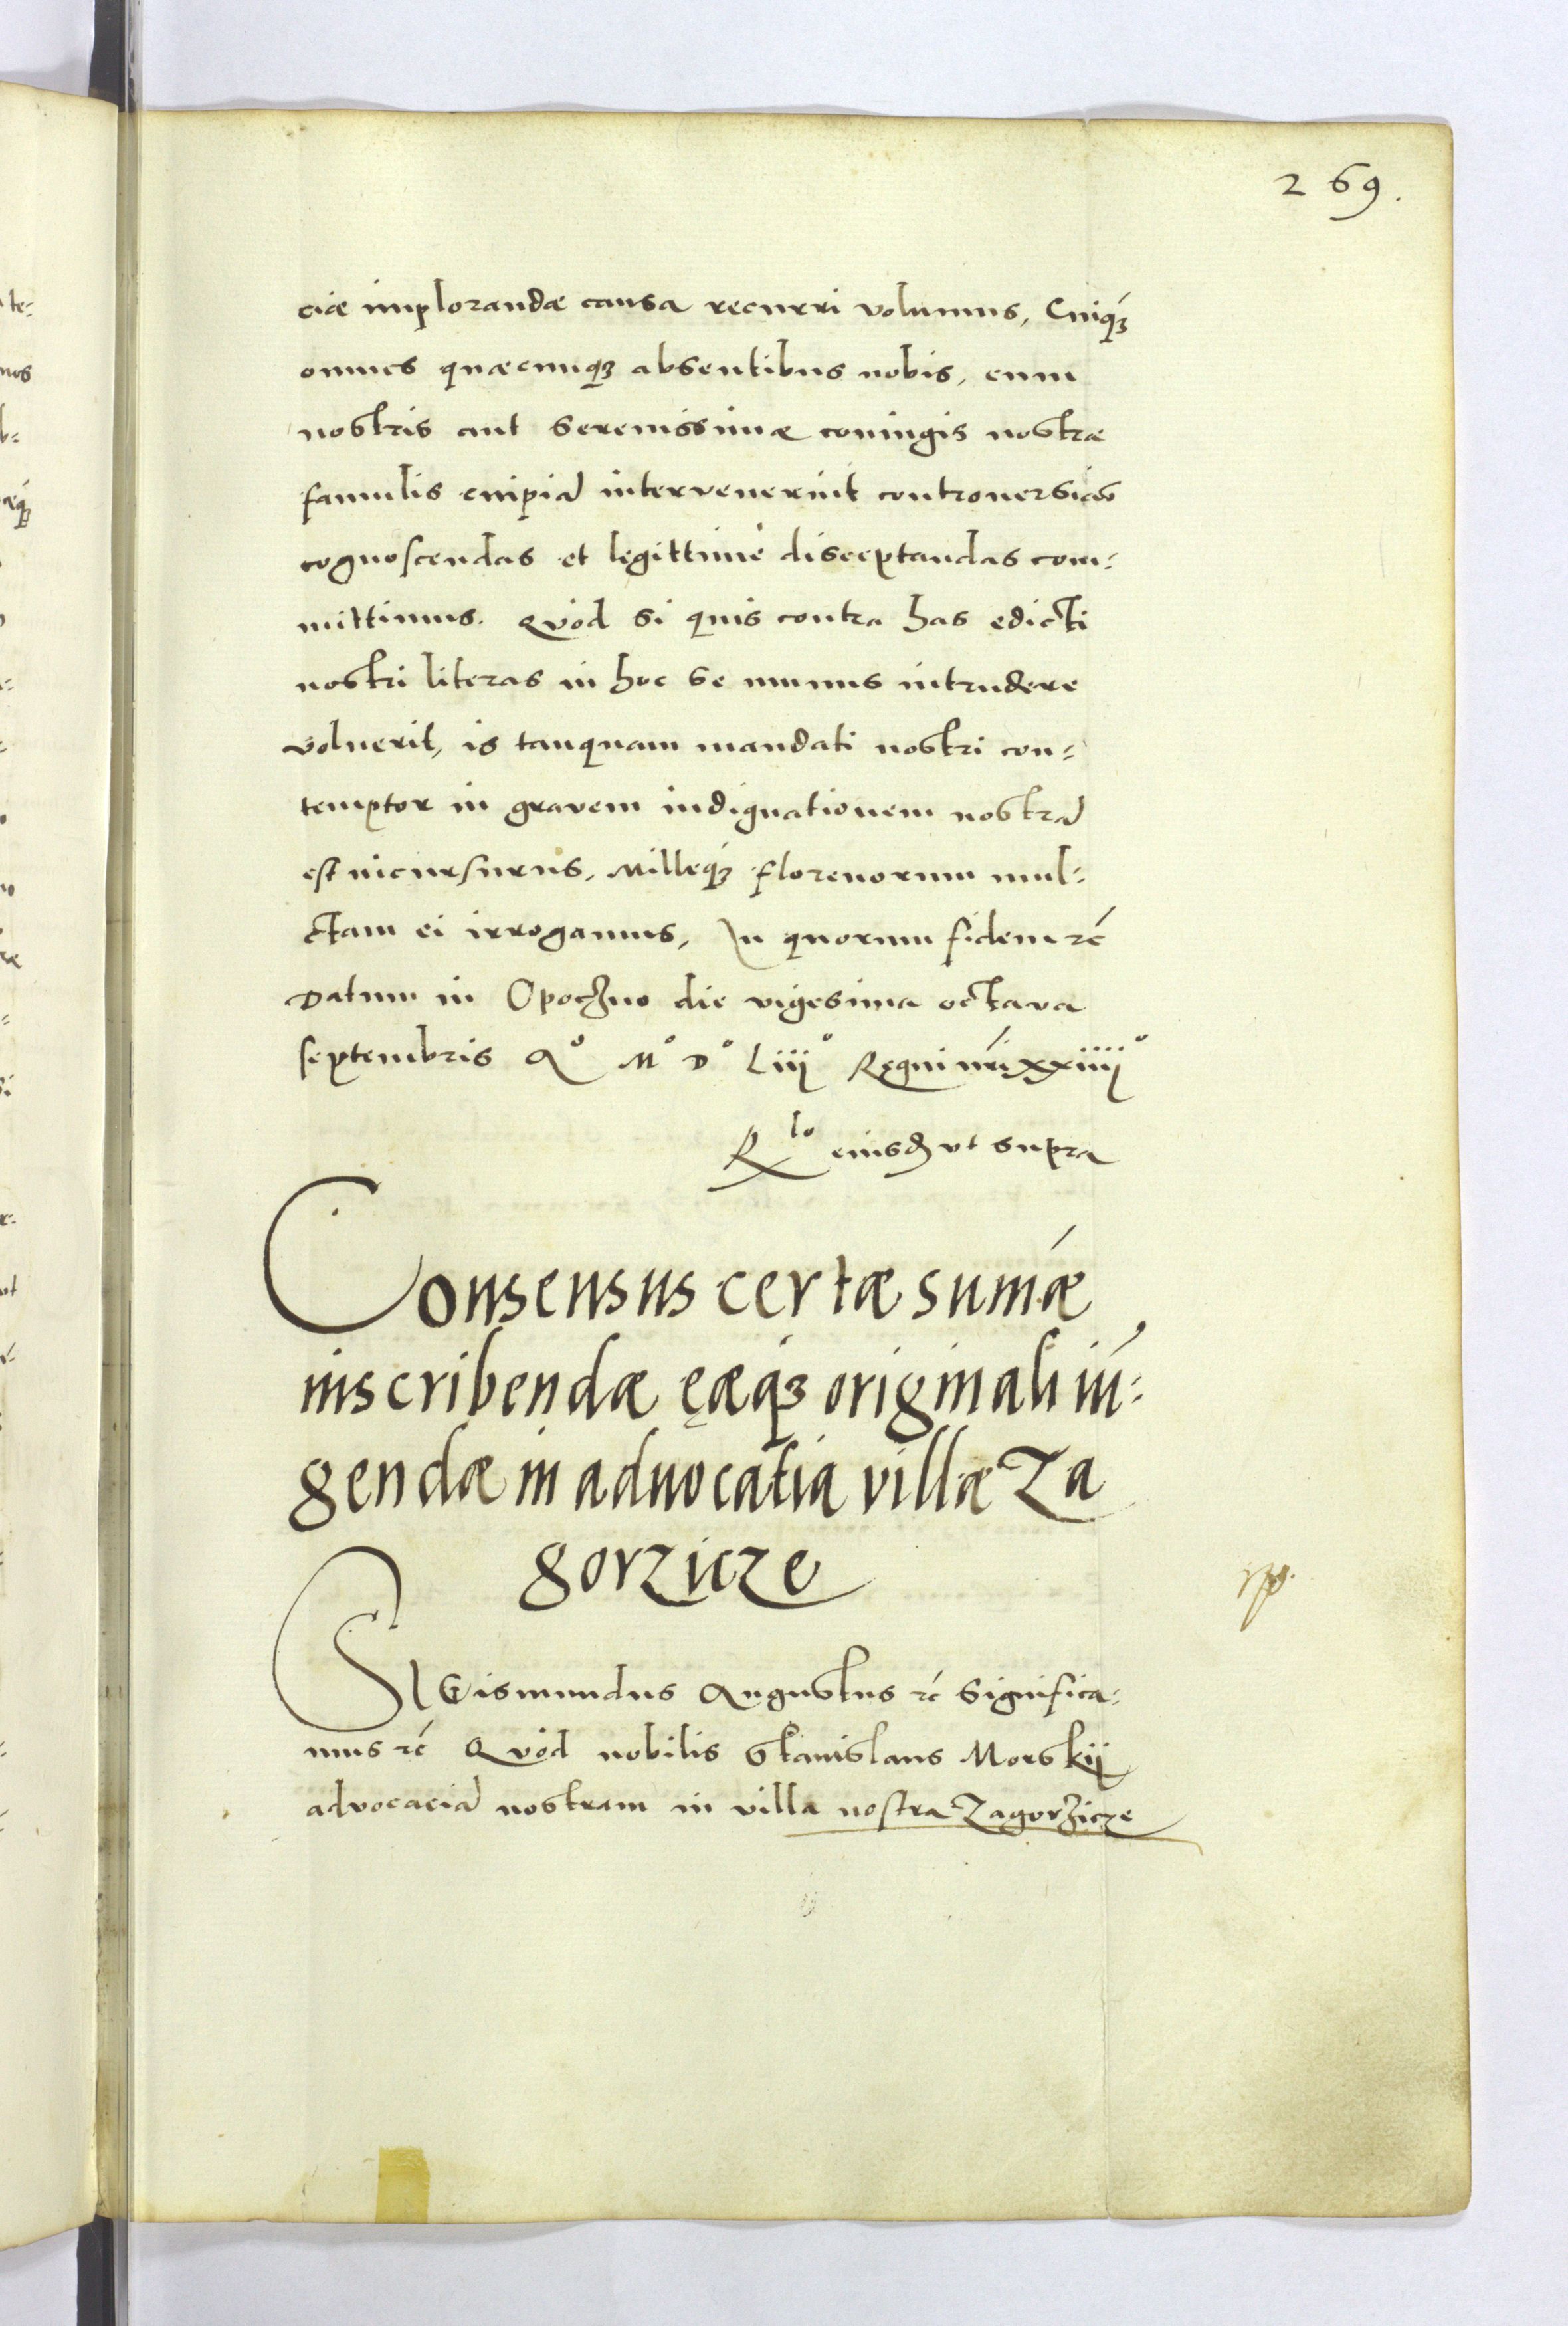 269.
ciæ implorandæ causa recurri volumus, Cuiq́ꝫ
omnes quæcunqꝫ absentibus nobis, cum
nostris aut Serenissimæ coniugis nostræ
famulis cuipiã intervenerint controversiæ
cognoscendas et legittimè disceptandas com=
mittimus. Quòd si quis contra has edicti
nostri literas in hoc se munus intrudere
voluerit, is tanquam mandati nostri con=
temptor in gravem indignationem nostrã
est incursurus, Milleq́ꝫ florenorum mul=
ctam ei irrogamus, In quorum fidem ⁊c̃
Datum in Opoczno die vigesima octava
septembris Aº Mº Dº Liijº Regni nr̃i xxiiijº
R ˡᵒ eiusd ut supra
Consensus certæ sum̃æ
inscribendæ eæqꝫ originali iũ=
gendæ in advocatia villæ Za
gorzicze
SIGismundus Augustus ⁊c̃ Significa=
mus ⁊c̃ Quòd nobilis Stanislaus Morskij
advocaciã nostram in villa nostra Zagorzicze